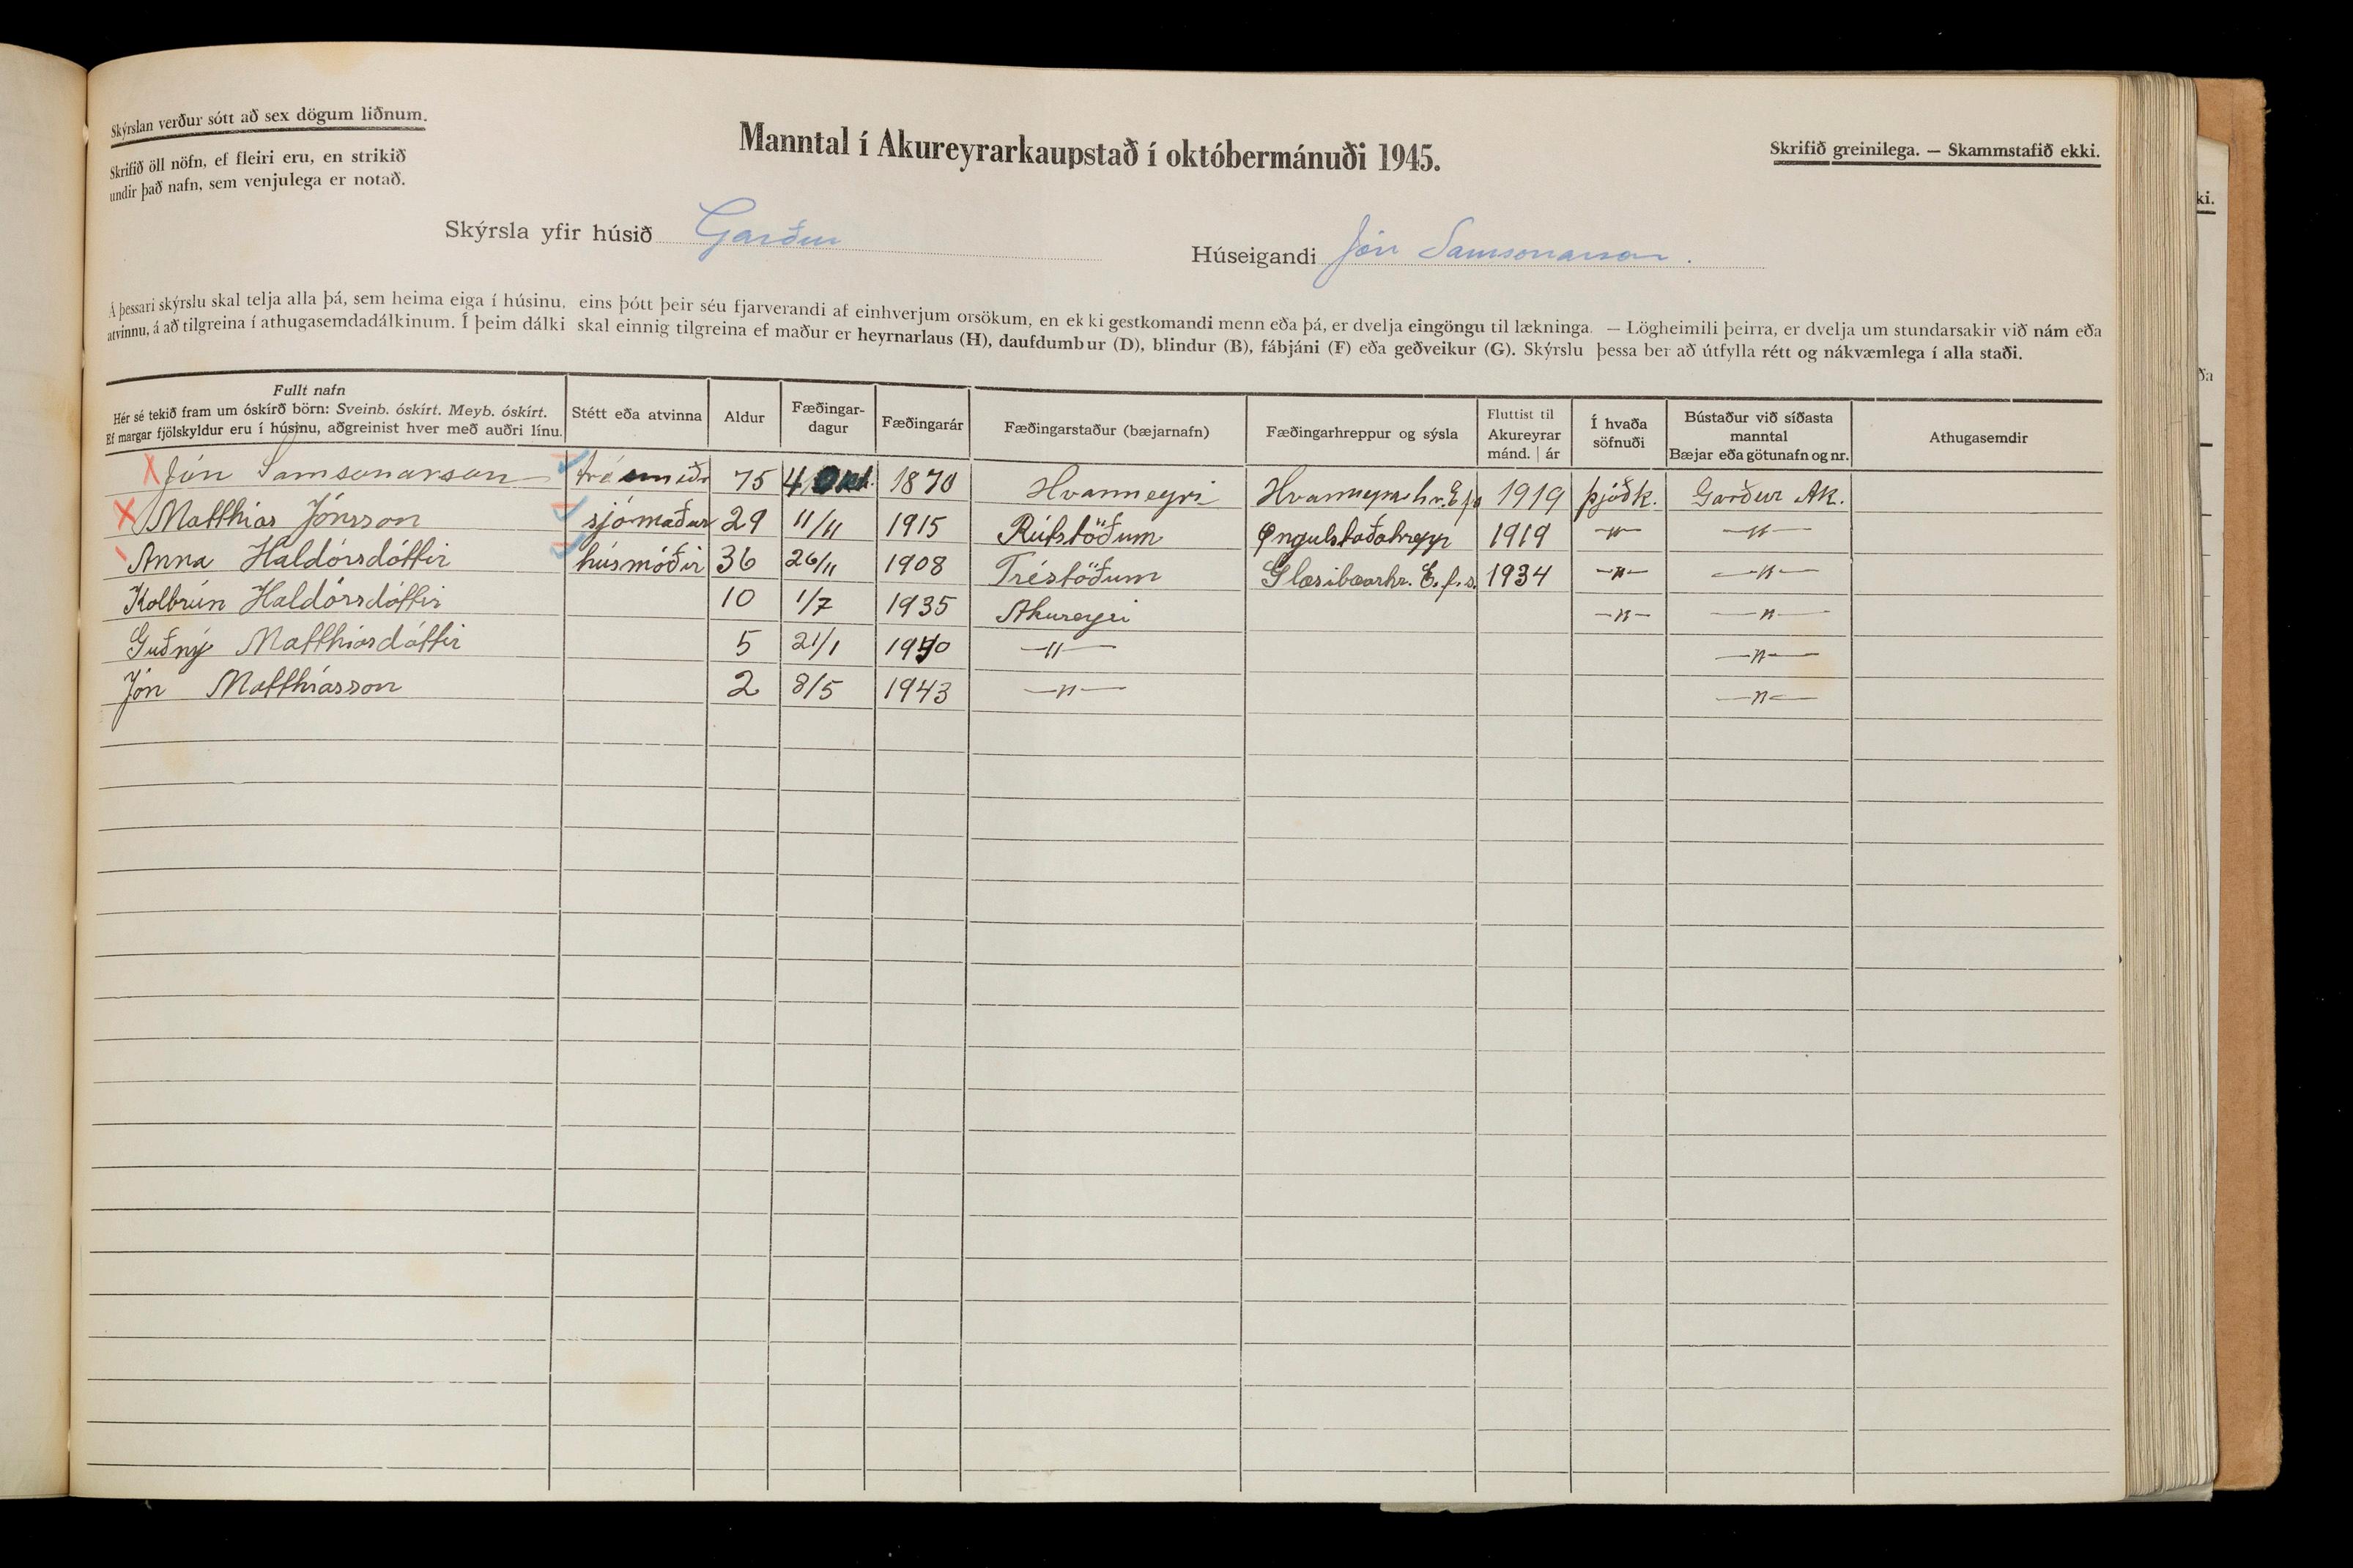 Skýrslan verður sótt að sex dögum liðnum.
Skrifið öll nöfn, ef fleiri eru, en strikið
undir það nafn, sem venjulega er notað.
Manntal í Akureyrarkaupstað í októbermánuði 1945.
Skrifið greinilega. — Skammstafið ekki.
Skýrsla yfir húsið Garður
Húseigandi Jón Samsonarson.
Á þessari skýrslu skal telja alla þá, sem heima eiga í húsinu, eins þótt þeir séu fjarverandi af einhverjum orsökum, en ekki gestkomandi menn eða þá, er dvelja eingöngu til lækninga. — Lögheimili þeirra, er dvelja um stundarsakir við nám eða
atvinnu, á að tilgreina í athugasemdadálkinum. Í þeim dálki skal einnig tilgreina ef maður er heyrnarlaus (H), daufdumbur (D), blindur (B), fábjáni (F) eða geðveikur (G). Skýrslu þessa ber að útfylla rétt og nákvæmlega í alla staði.
Fullt nafn
Hér sé tekið fram um óskírð börn: Sveinb. óskírt. Meyb. óskírt.
Ef margar fjölskyldur eru í húsinu, aðgreinist hver með auðri línu.
Stétt eða atvinna
Aldur
Fæðingar-
dagur
Fæðingarár
Fæðingarstaður (bæjarnafn)
Fæðingarhreppur og sýsla
Fluttist til
Akureyrar
mánd. | ár
Í hvaða
söfnuði
Bústaður við síðasta
manntal
Bæjar eða götunafn og nr.
Athugasemdir
Jón Samsonarson trésmiðr 75 4 Okt. 1870 Hvanneyri Hvanneyrarhr. Efs 1919 þjóðk. Garður Ak.
Matthías Jónsson sjómaður 29 11/11 1915 Rútstöðum Öngulstaðahrepp 1919 —"— —"—
Anna Haldórsdóttir húsmóðir 36 26/11 1908 Tréstöðum Glæsibæarhr. E.f.s. 1934 —"— —"—
Kolbrún Haldórsdóttir 10 1/7 1935 Akureyri —"— —"—
Guðný Matthíasdóttir 5 21/1 1940 —"— —"—
Jón Matthíasson 2 8/5 1943 —"— —"—
ki.
ða